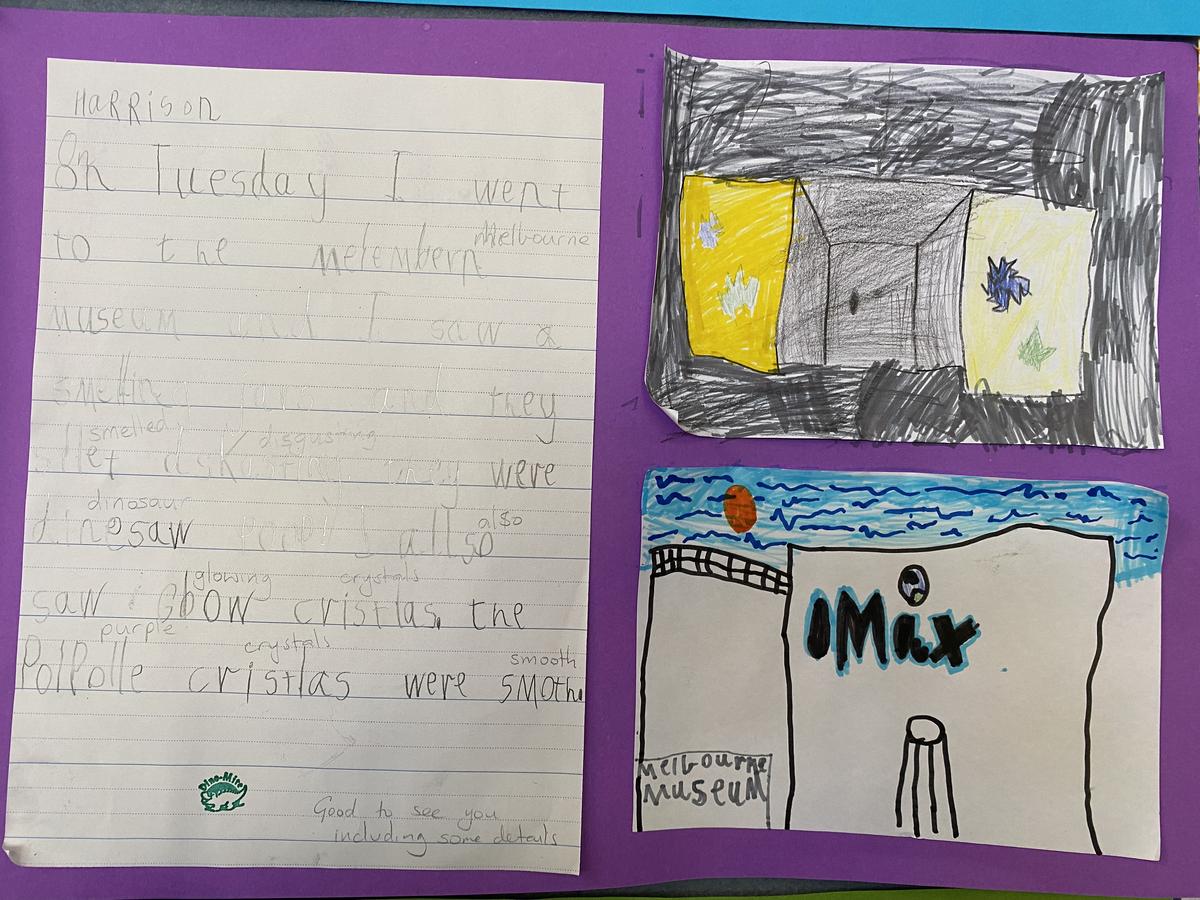 HaRRison
On Tuesday I went
Melbourne
to the melembern
museum and I saw a
smelling and they
smelled disgusting
diskosting they were
dinosaur
dinesaw poop I allso
also
glowing crystals
saw Gbow cristlas. the
purple crystals smooth
PolPolle cristlas were smoth.
Dino-Mite
Good to see you
including some details
IMax
Melbourne
Museum